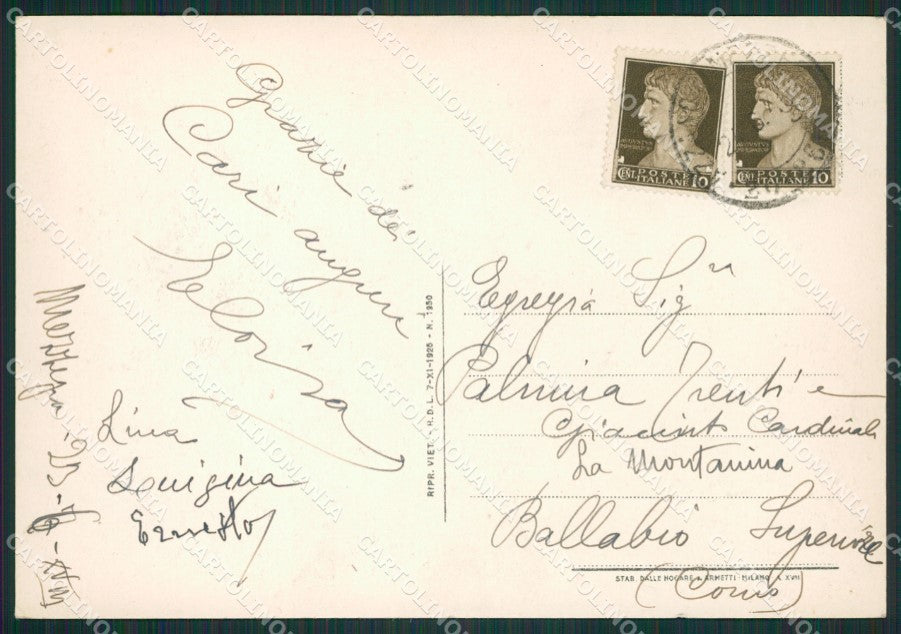 Grazie dei
Cari auguri
Eloisa
Lina
Luigina
Ernesto
RIPR. VIET. - R.D.L. 7-XI-1925 - N. 1950
AVGVSTVS
IMPERATOR
CENT. POSTE ITALIANE 10
AVGVSTVS
IMPERATOR
CENT. POSTE ITALIANE 10
Egregia Sigra
Palmira Trenti e
Giacinto Cardinali
La Montanina
Ballabio Superiore
(Como)
STAB. DALLE NOGARE e ARMETTI-MILANO A. XVII
CARTOLINOMANIA